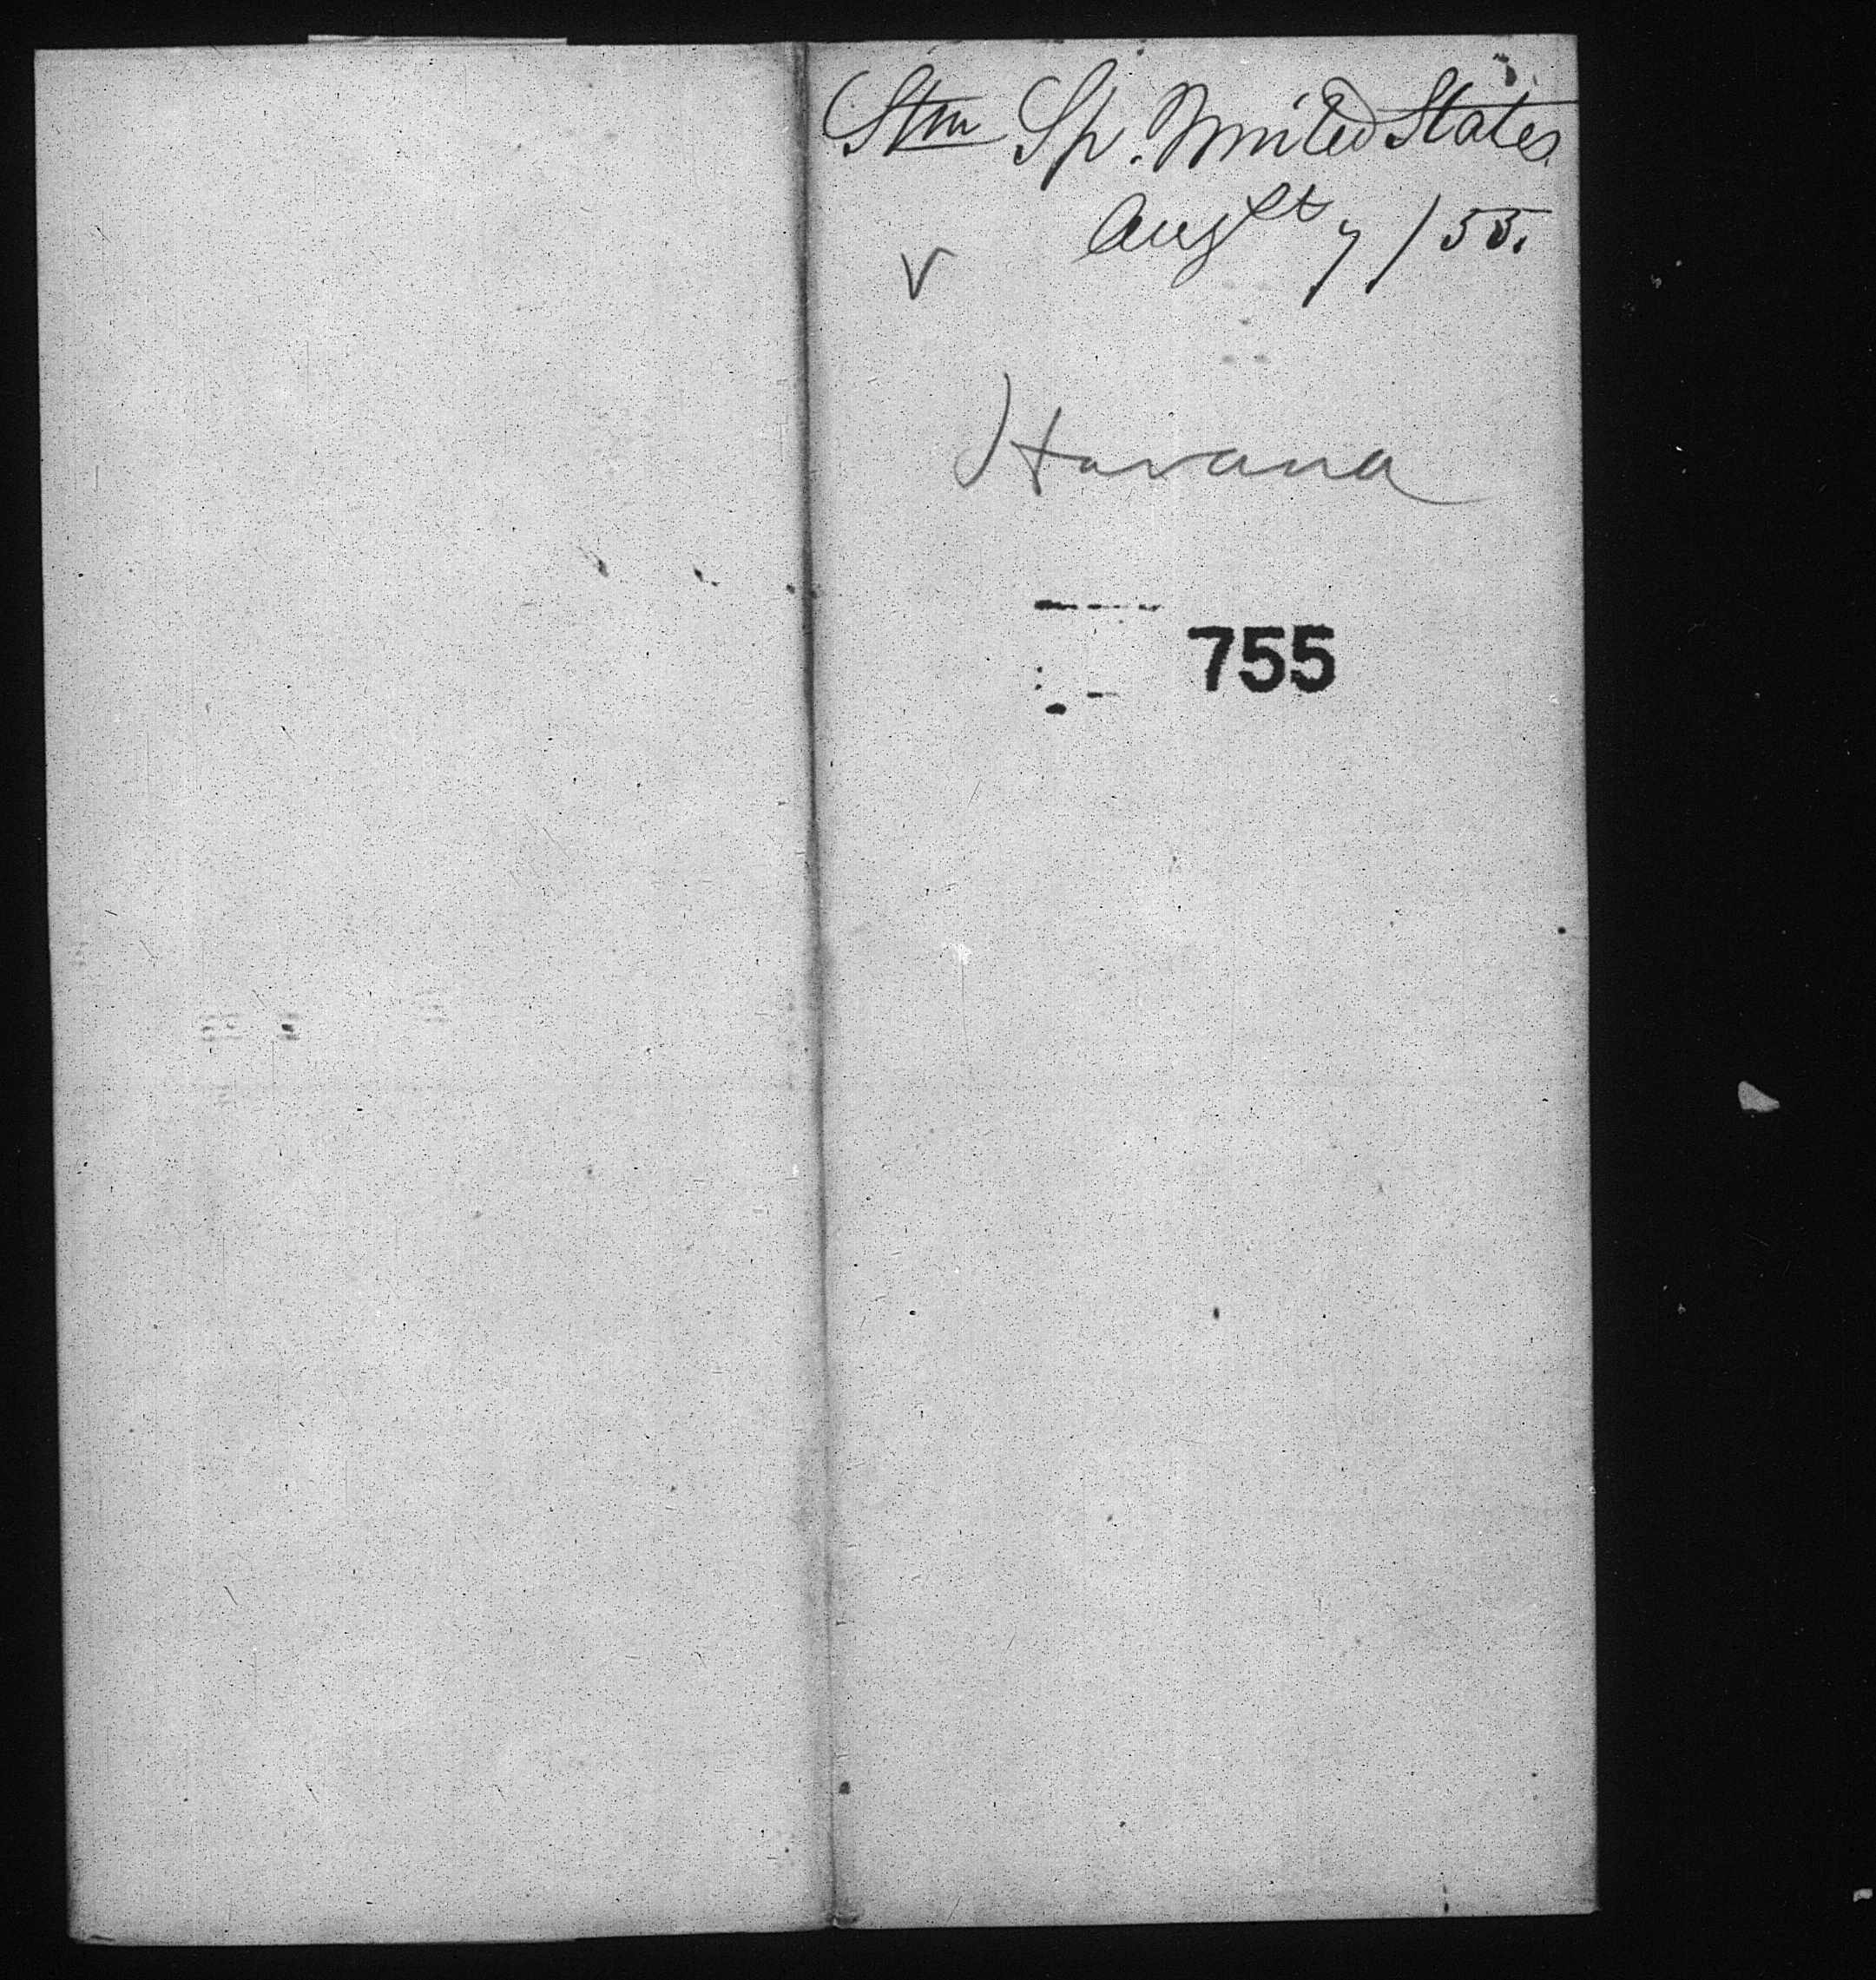 Stm Sp. United States
Augst 7/55.
v
Havana
755